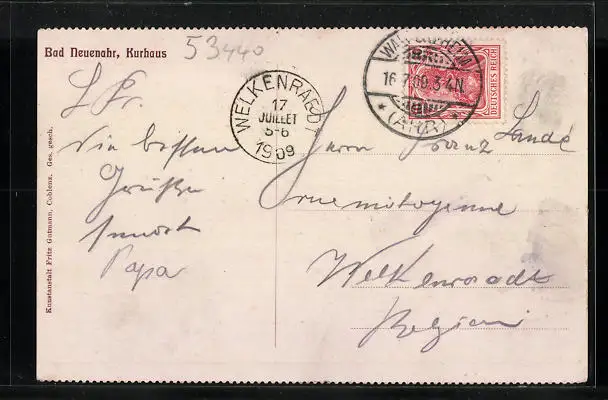 Bad Neuenahr, Kurhaus
53440
WALPORZHEIM
16.7.09.3-4N.
* (AHR) *
DEUTSCHES REICH
WELKENRAEDT
17
JUILLET
5-6
1909
L Fr.
Die besten
Grüsse
sendet
Papa
Herrn Franz Landé
Welkenraedt
Belgien
Kunstanstalt Fritz Gutmann, Coblenz. Ges. gesch.